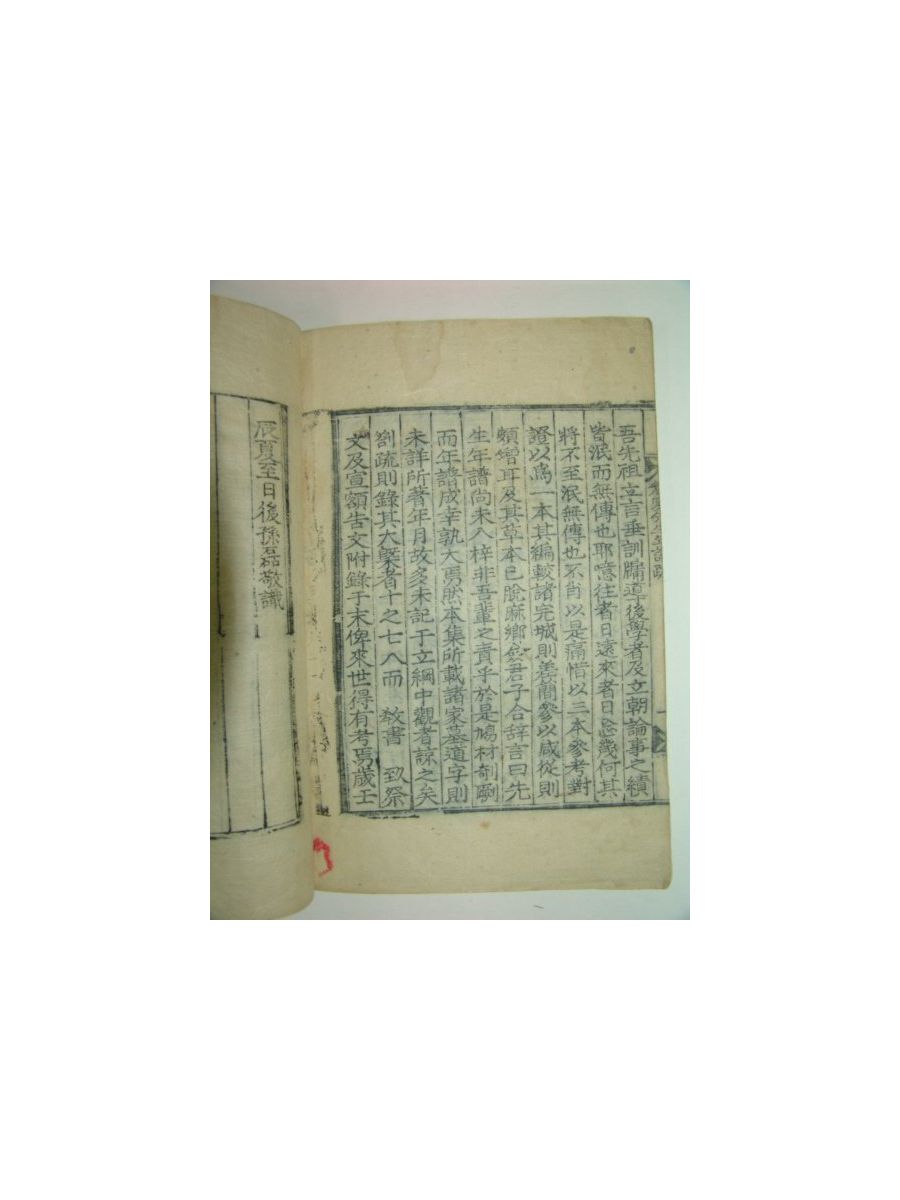 吾先祖立言垂訓牖導後學者及立朝論事之績
皆泯而無傳也耶噫往者日遠來者日忘幾何其
將不至泯無傳也不肖以是痛惜以三本參考對
證以爲一本其編較諸完城則差簡參以咸從則
頗增耳及其草本已脫麻鄉僉君子合辞言曰先
生年譜尚未入梓非吾輩之責乎於是鳩材剞劂
而年譜成幸孰大焉然本集所載諸家墓道字則
未詳所著年月故多未記于立綱中觀者諒之矣
劄疏則錄其大槩者十之七八而 敎書 致祭
文及宣額告文附錄于末俾來世得有考焉歲壬
辰夏至日後孫磊敬識